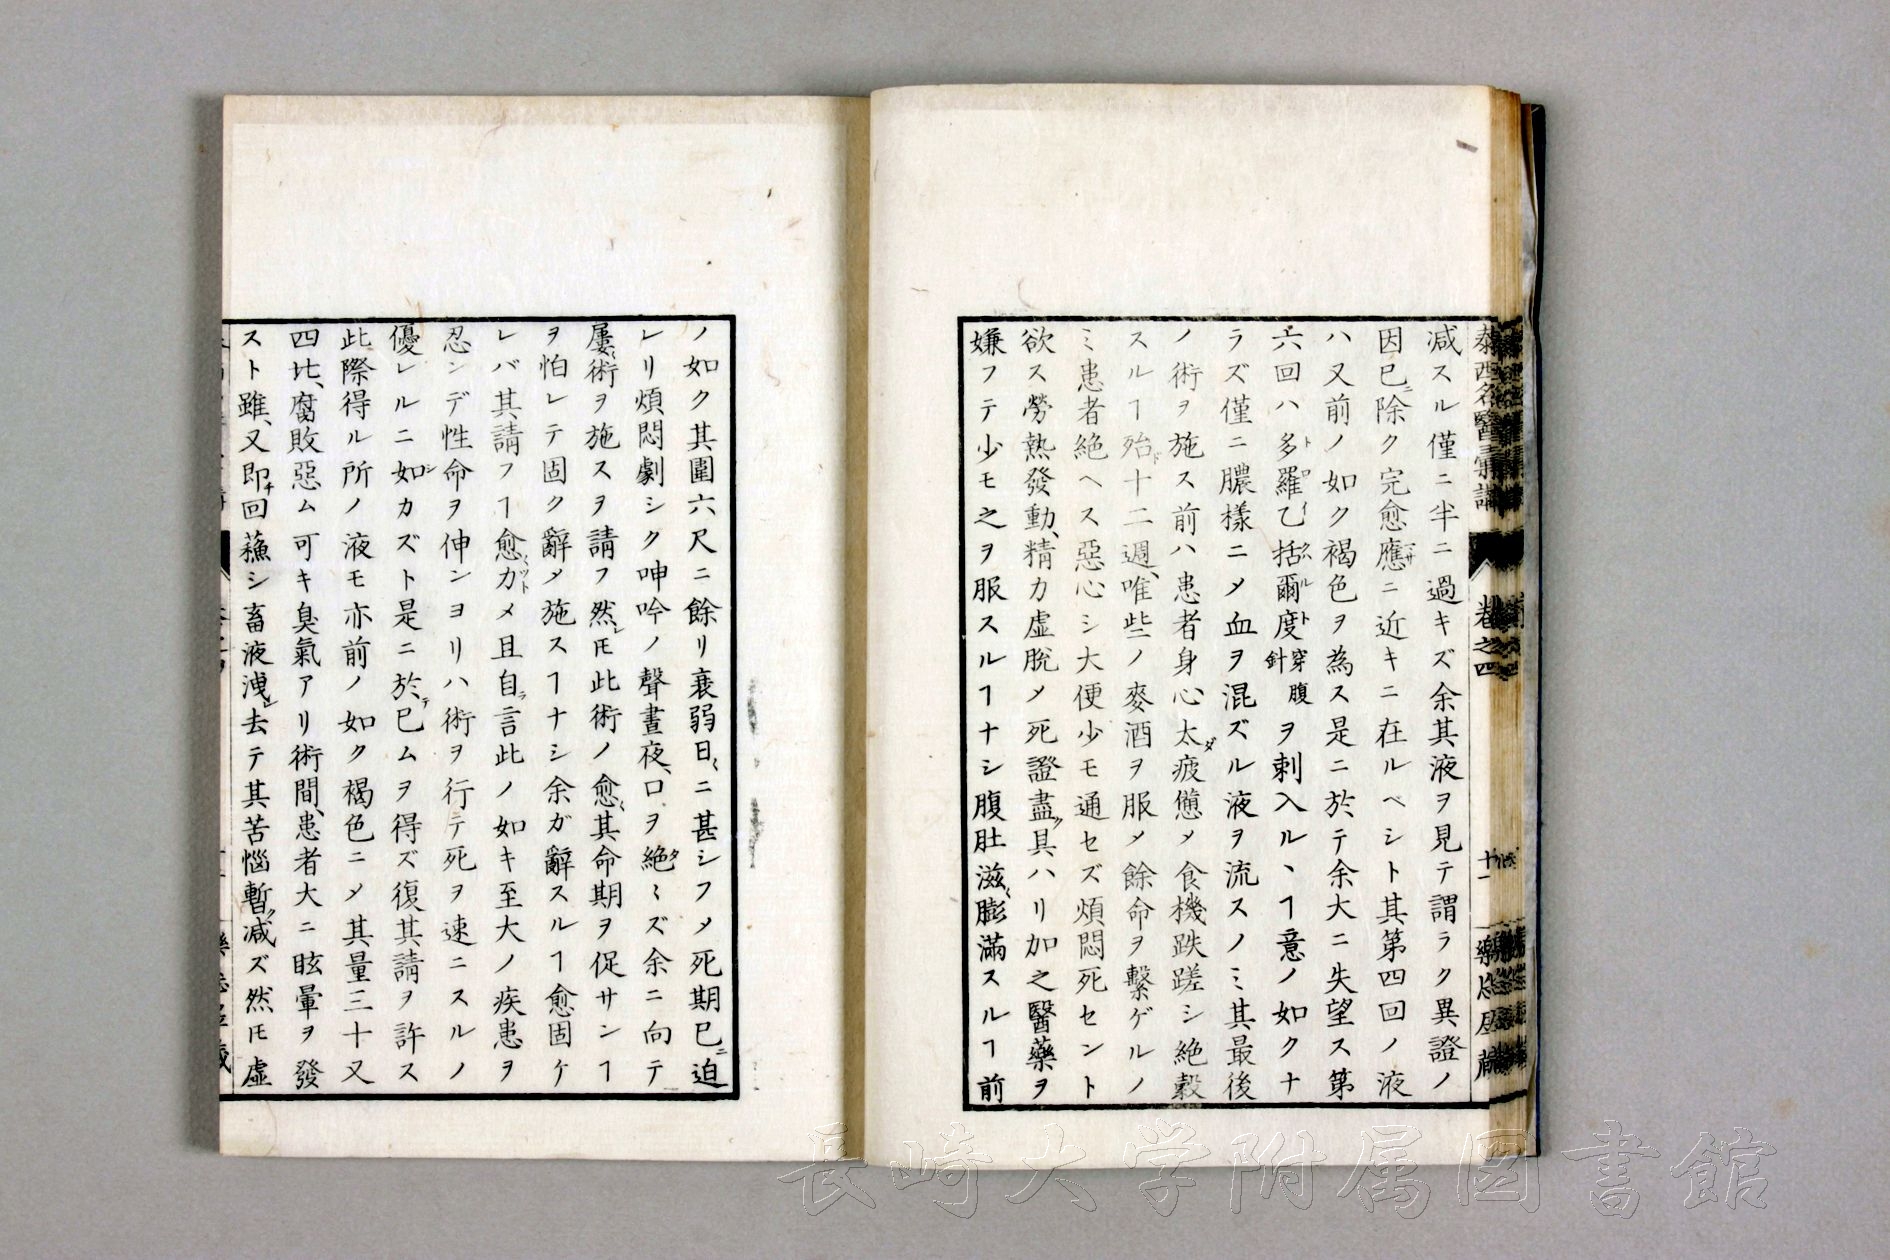 泰西名醫彙講 卷之四 十一
減スル僅ニ半ニ過キズ余其液ヲ見テ謂ラク異證ノ
因已ニ除ク完愈應ニ近キニ在ルベシト其第四回ノ液
ハ又前ノ如ク褐色ヲ為ス是ニ於テ余大ニ失望ス第
六回ハ多羅乙括爾度穿腹針ヲ刺入ルヽヿ意ノ如クナ
ラズ僅ニ膿樣ニメ血ヲ混ズル液ヲ流スノミ其最後
ノ術ヲ施ス前ハ患者身心太疲憊メ食機跌蹉シ絶穀
スルヿ殆ド十二週、唯些ノ麥酒ヲ服メ餘命ヲ繋ゲルノ
ミ患者絶ヘス惡心シ大便少モ通セズ煩悶死セント
欲ス勞熱發動、精力虛脫メ死證盡ク具ハリ加之醫藥ヲ
嫌フテ少モ之ヲ服スルヿナシ腹肚滋〻膨滿スルヿ前
ノ如ク其圍六尺ニ餘リ衰弱日〻ニ甚シフメ死期已ニ迫
レリ煩悶劇シク呻吟ノ聲晝夜、口ヲ絶タミズ余ニ向テ
屢〻術ヲ施スヲ請フ然レ𪜈此術ノ愈〻其命期ヲ促サンヿ
ヲ怕レテ固ク辭メ施スヿナシ余ガ辭スルヿ愈固ケ
レバ其請フヿ愈カメ且自ラ言此ノ如キ至大ノ疾患ヲ
忍ンデ性命ヲ伸ンヨリハ術ヲ行テ死ヲ速ニスルノ
優レルニ如カズト是ニ於テ已ムヲ得ズ復其請ヲ許ス
此際得ル所ノ液モ亦前ノ如ク褐色ニメ其量三十又
四比、腐敗惡ム可キ臭氣アリ術間、患者大ニ眩暈ヲ發
スト雖、又即チ回蘓シ畜液洩レ去テ其苦惱暫ク減ズ然𪜈虛
長崎大学附属図書館